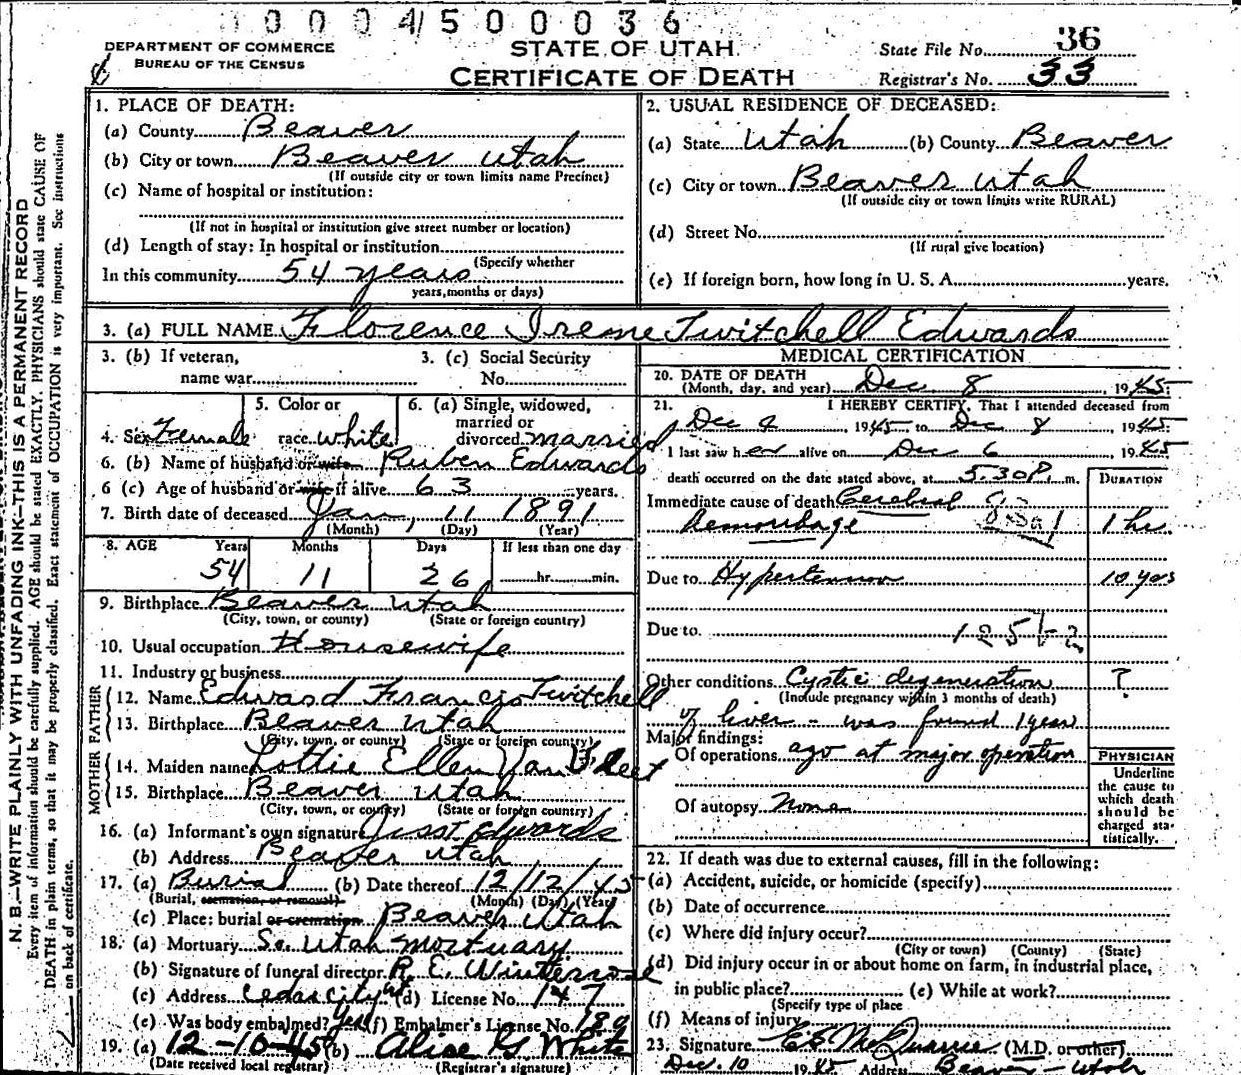 0004500036
DEPARTMENT OF COMMERCE
BUREAU OF THE CENSUS
STATE OF UTAH
CERTIFICATE OF DEATH
State File No. 36
Registrar's No. 33
N. B.—WRITE PLAINLY WITH UNFADING INK—THIS IS A PERMANENT RECORD
Every item of information should be carefully supplied. AGE should be stated EXACTLY. PHYSICIANS should state CAUSE OF
DEATH in plain terms, so that it may be properly classified. Exact statement of OCCUPATION is very important. See instructions
on back of certificate.
1. PLACE OF DEATH:
(a) County Beaver
(b) City or town Beaver Utah
(If outside city or town limits name Precinct)
(c) Name of hospital or institution:
(If not in hospital or institution give street number or location)
(d) Length of stay: In hospital or institution
(Specify whether
In this community 54 years
years, months or days)
2. USUAL RESIDENCE OF DECEASED:
(a) State Utah (b) County Beaver
(c) City or town Beaver Utah
(If outside city or town limits write RURAL)
(d) Street No.
(If rural give location)
(e) If foreign born, how long in U. S. A. years.
3. (a) FULL NAME Florence Irene Twitchell Edwards
3. (b) If veteran,
name war
3. (c) Social Security
No.
4. Sex Female
5. Color or
race white
6. (a) Single, widowed,
married or
divorced married
6. (b) Name of husband or wife Ruben Edwards
6 (c) Age of husband or wife if alive 63 years.
7. Birth date of deceased Jan, 11 1891
(Month) (Day) (Year)
8. AGE Years Months Days If less than one day
54 11 26 hr. min.
9. Birthplace Beaver Utah
(City, town, or county) (State or foreign country)
10. Usual occupation Housewife
11. Industry or business
FATHER
12. Name Edward Francis Twitchell
13. Birthplace Beaver Utah
(City, town, or county) (State or foreign country)
MOTHER
14. Maiden name Lottie Ellen Van Fleet
15. Birthplace Beaver Utah
(City, town, or county) (State or foreign country)
16. (a) Informant's own signature Edwards
(b) Address Beaver Utah
17. (a) Burial (b) Date thereof 12/12/45
(Burial, cremation, or removal) (Month) (Day) (Year)
(c) Place: burial or cremation Beaver Utah
18. (a) Mortuary So. Utah Mortuary
(b) Signature of funeral director R. E. Winterrose
(c) Address Cedar City Ut (d) License No. 147
(e) Was body embalmed? Yes (f) Embalmer's License No. 189
19. (a) 12-10-45 (b) Alise G White
(Date received local registrar) (Registrar's signature)
MEDICAL CERTIFICATION
20. DATE OF DEATH
(Month, day, and year) Dec 8, 1945
21. I HEREBY CERTIFY, That I attended deceased from
Dec 1945 to Dec 8 1945
I last saw her alive on Dec 6, 1945
death occurred on the date stated above, at 5.30 P. m.
DURATION
Immediate cause of death Cerebral
hemorrhage 1 hr
Due to Hypertension 10 yrs
Due to
Other conditions Cystic degeneration ?
(Include pregnancy within 3 months of death)
of liver - was found 1 year
Major findings:
Of operations ago at major operation
Of autopsy None
PHYSICIAN
Underline
the cause to
which death
should be
charged sta-
tistically.
22. If death was due to external causes, fill in the following:
(a) Accident, suicide, or homicide (specify)
(b) Date of occurrence
(c) Where did injury occur?
(City or town) (County) (State)
(d) Did injury occur in or about home on farm, in industrial place,
in public place? (e) While at work?
(Specify type of place
(f) Means of injury
23. Signature E S McQuarrie (M.D. or other)
Dec. 10 1945 Address Beaver - Utah